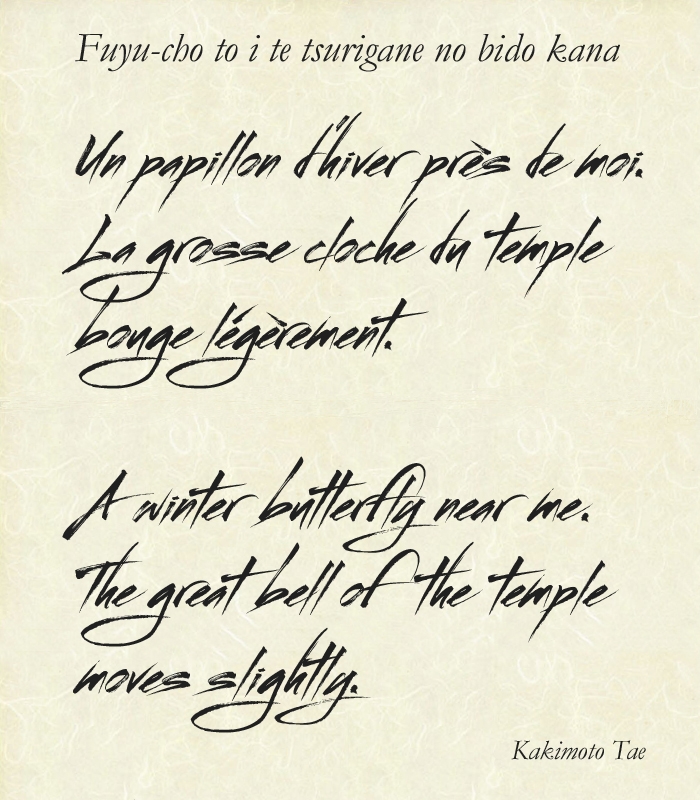 Fuyu-cho to i te tsurigane no bido kana
Un papillon d'hiver près de moi.
La grosse cloche du temple
bouge légèrement.
A winter butterfly near me.
The great bell of the temple
moves slightly.
Kakimoto Tae